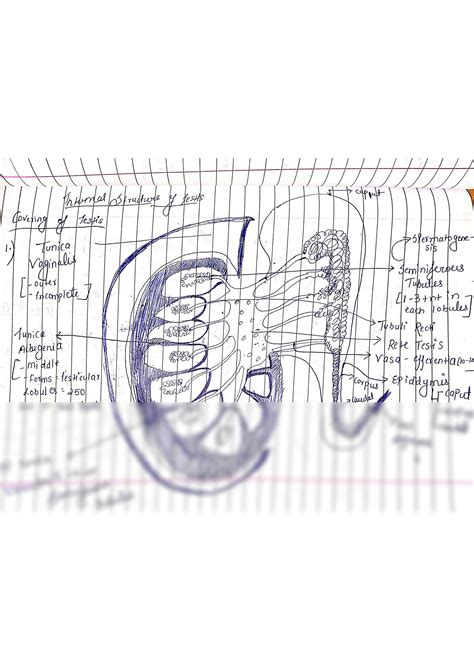 Internal Structure of Testis
Covering of Testis
caput
1.) Tunica
Vaginalis
[- outer
- Incomplete]
Tunica
Albugenia
[- middle
- forms testicular
lobules = 250
Spermatogene-
sis
Seminiferous
Tubules
[1-3 tnt in
each lobules]
Tubuli Recti
Rete Testis
Vasa - efferentia
Epididymis
caput
corpus
caudal